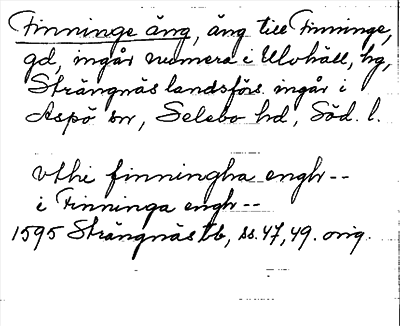 Finninge äng, äng till Finninge,
gd, ingår numera i Ulvhäll, hg,
Strängnäs landsförs. ingår i
Aspö sn, Selebo hd, Söd. l.
vthi finningha engh --
i Finninga engh --
1595 Strängnäs tb, ss. 47, 49. orig.